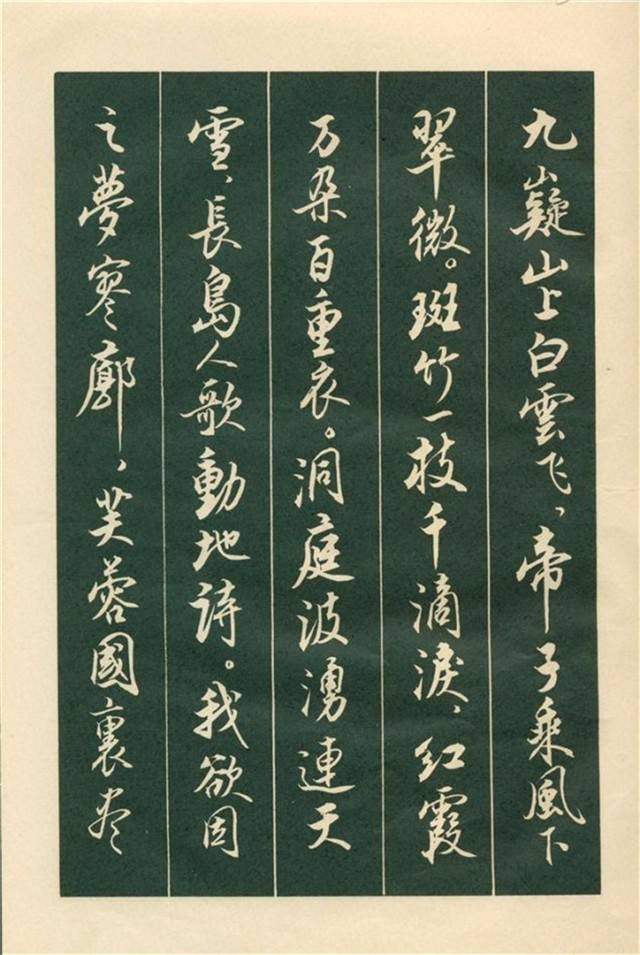 九嶷山上白雲飞，帝子乘風下
翠微。斑竹一枝千滴淚，红霞
万朵百重衣。洞庭波湧連天
雪，長島人歌動地詩。我欲因
之夢寥廓，芙蓉國裏尽